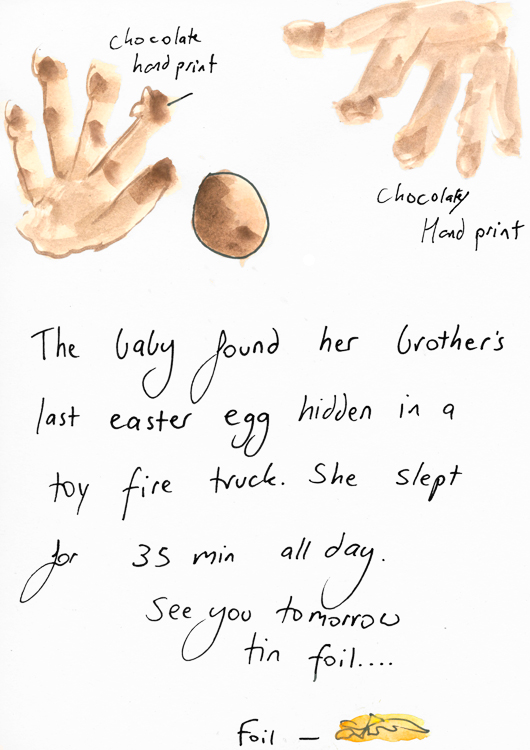 Chocolate
hand print
Chocolatey
Hand print
The baby found her brother's
last easter egg hidden in a
toy fire truck. She slept
for 35 min all day.
See you tomorrow
tin foil....
Foil –